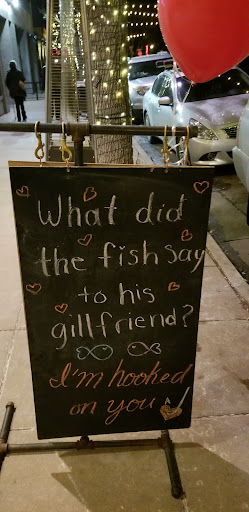 What did
the fish say
to his
gillfriend?
I'm hooked
on you